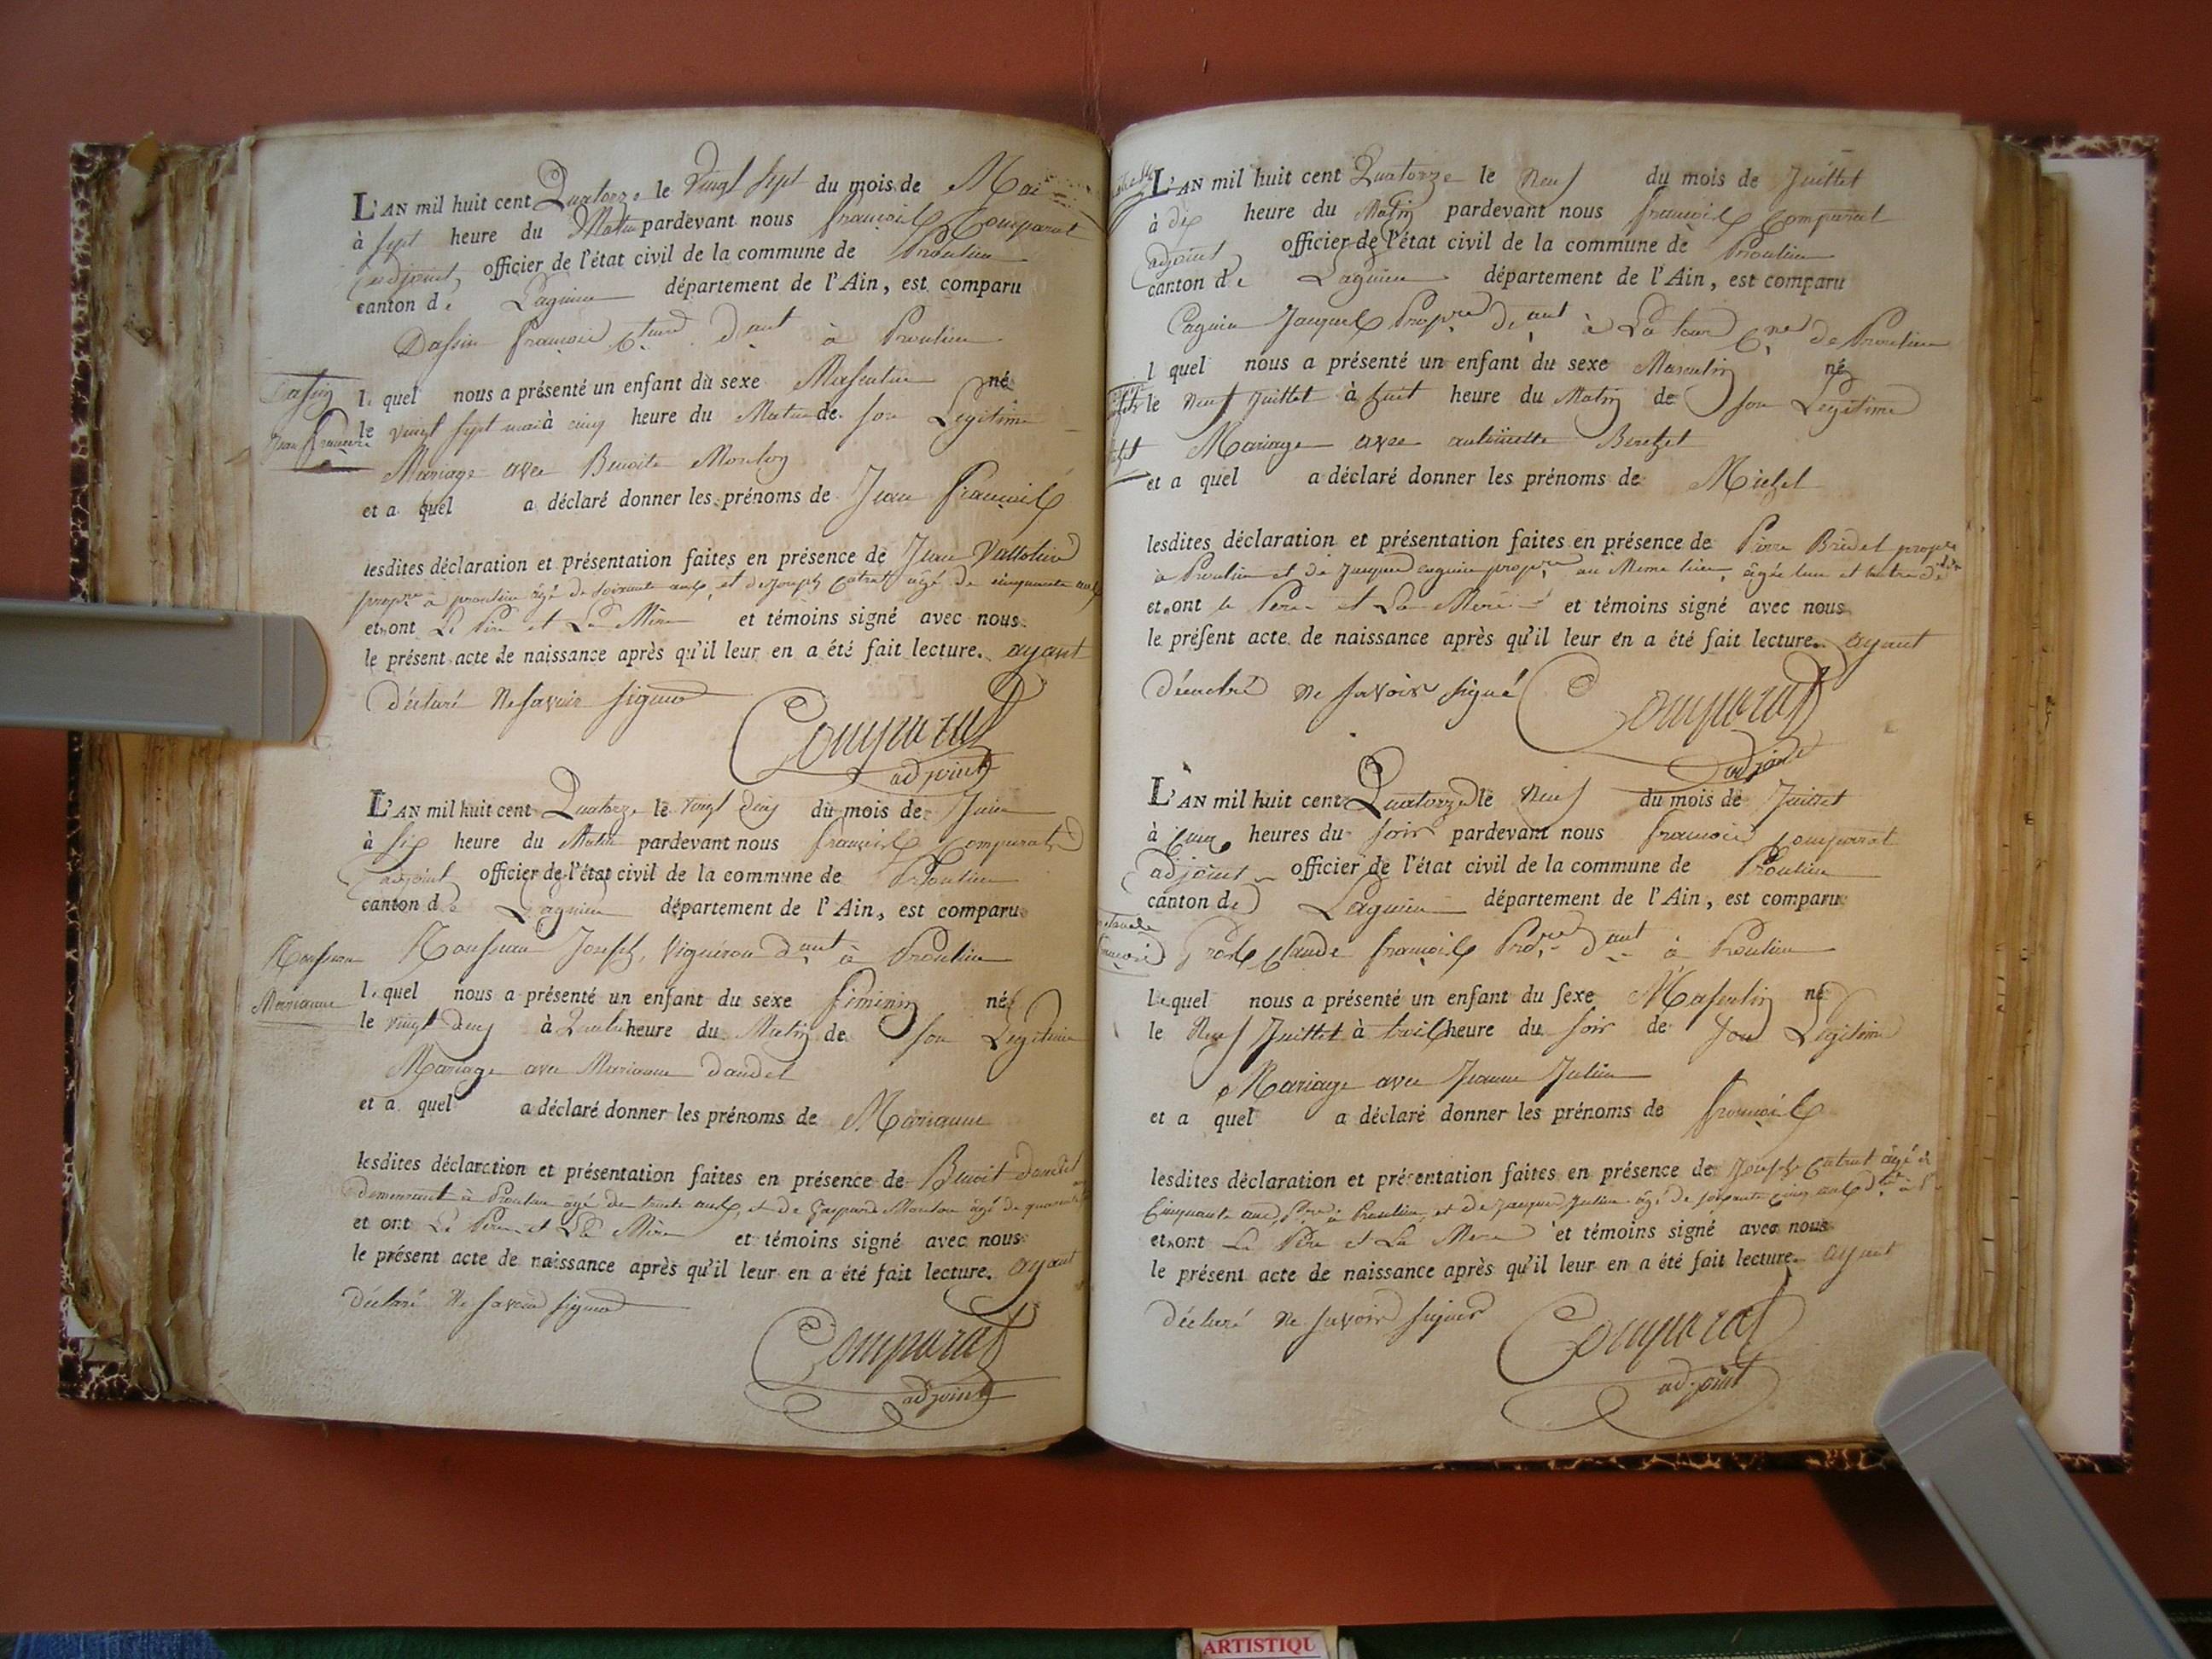 L'AN mil huit cent Quatorze le Vingt Sept du mois de Mai
à Sept heure du Matin pardevant nous françois Comparat
adjoint officier de l'état civil de la commune de Proulieu
canton de Lagnieu département de l'Ain, est comparu
françois à Proulieu
l. quel nous a présenté un enfant du sexe Masculin né
Jean françois
le vingt sept mai à cinq heure du Matin de son Legitime
Mariage avec Benoite Monton
et a quel a déclaré donner les prénoms de Jean françois
lesdites déclaration et présentation faites en présence de Jean
propre à proulieu âgé de Soixante ans, et de Joseph Cotret âgé de cinquante ans
et ont Le Père et La Mère et témoins signé avec nous
le présent acte de naissance après qu'il leur en a été fait lecture. ayant
déclaré Ne Savoir signer
Comparat
adjoint
L'AN mil huit cent Quatorze le vingt deux du mois de Juin
à six heure du Matin pardevant nous françois Comparat
adjoint officier de l'état civil de la commune de Proulieu
canton de Lagnieu département de l'Ain, est comparu
Joseph, Vigneron à Proulieu
Marianne
l. quel nous a présenté un enfant du sexe féminin né
le vingt deux à Quatre heure du Matin de son Legitime
Mariage avec Marianne daudet
et a quel a déclaré donner les prénoms de Marianne
lesdites déclaration et présentation faites en présence de Benoit daudet
demeurant à Proulieu âgé de trente ans, et de Gaspard Monton âgé de quarante
et ont Le Père et La Mère et témoins signé avec nous
le présent acte de naissance après qu'il leur en a été fait lecture. ayant
déclaré Ne savoir signer
Comparat
adjoint
L'AN mil huit cent Quatorze le Neuf du mois de Juillet
à dix heure du Matin pardevant nous françois Comparat
adjoint officier de l'état civil de la commune de Proulieu
canton de Lagnieu département de l'Ain, est comparu
Jacques à La tour de Proulieu
l quel nous a présenté un enfant du sexe Masculin né
le Neuf Juillet à huit heure du Matin de son Legitime
Mariage avec antoinette
et a quel a déclaré donner les prénoms de Michel
lesdites déclaration et présentation faites en présence de Pierre Bridet
à Proulieu et de Jacques au Même lieu, âgés l'un et l'autre de
et ont le Père et La Mère et témoins signé avec nous
le présent acte de naissance après qu'il leur en a été fait lecture. ayant
ne savoir signé
Comparat
adjoint
L'AN mil huit cent Quatorze le Neuf du mois de Juillet
à cinq heures du soir pardevant nous françois Comparat
adjoint officier de l'état civil de la commune de Proulieu
canton de Lagnieu département de l'Ain, est comparu
Claude françois à Proulieu
françois
le quel nous a présenté un enfant du sexe Masculin né
le Neuf Juillet à trois heure du soir de son Legitime
Mariage avec Jeanne Julien
et a quel a déclaré donner les prénoms de françois
lesdites déclaration et présentation faites en présence de Joseph Cotret âgé de
Cinquante ans, à Proulieu, et de Jacques Julien âgé de soixante cinq ans
et ont Le Père et La Mère et témoins signé avec nous
le présent acte de naissance après qu'il leur en a été fait lecture. ayant
déclaré ne savoir signer
Comparat
adjoint
ARTISTIQU